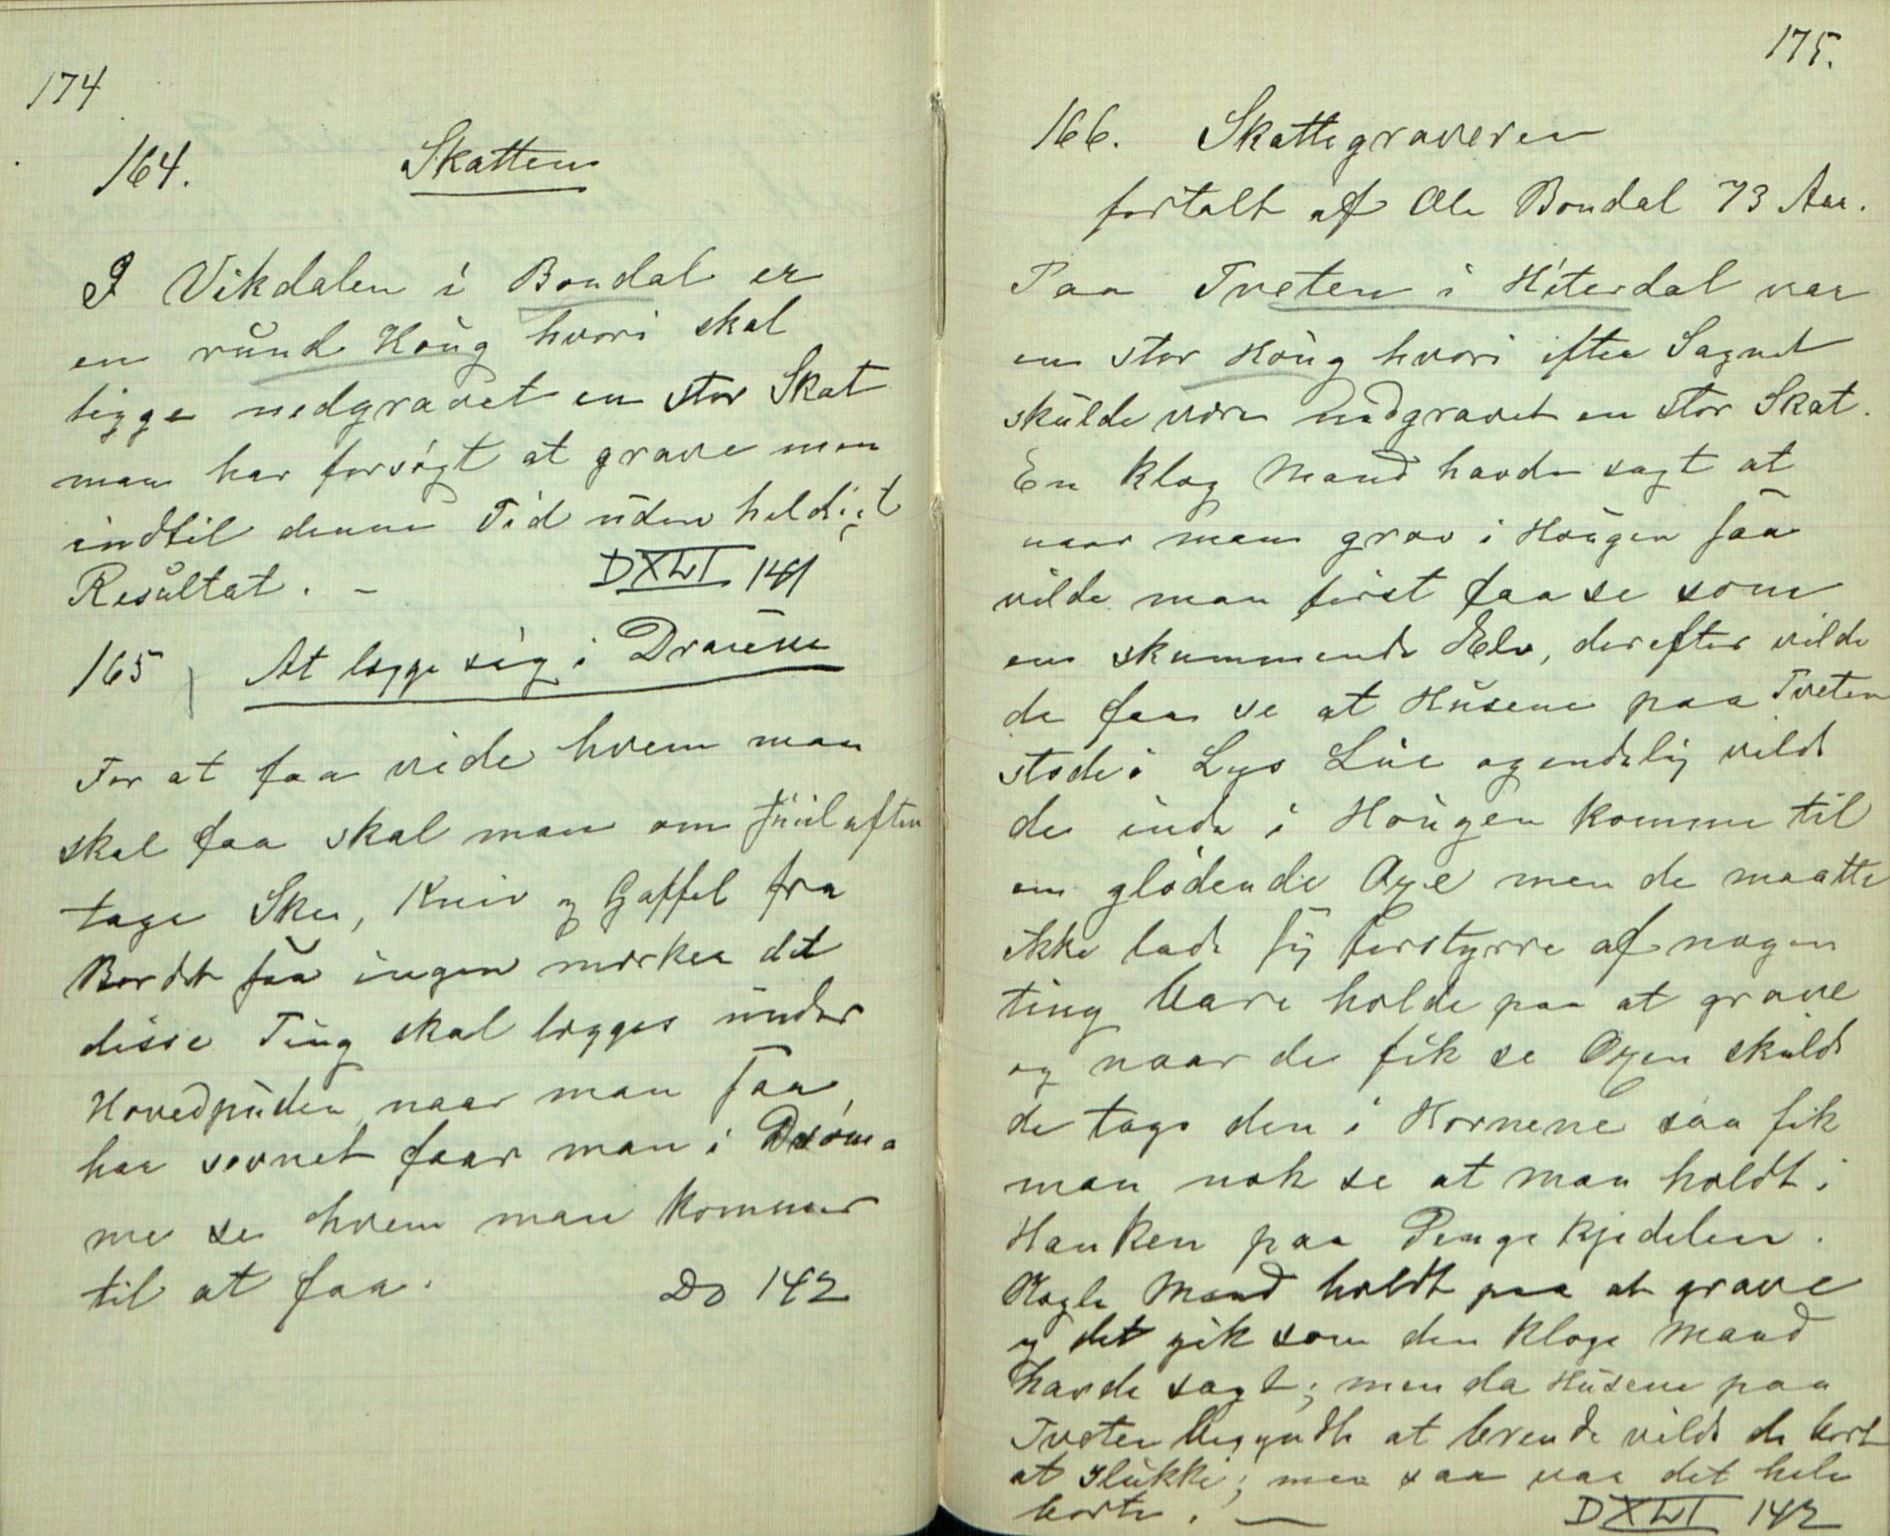 174
164. Skatten
I Vikdalen i Bondal er
en rund Houg hvori skal
ligge nedgravet en stor Skat
man har forsøgt at grave men
indtil denne Tid uden heldigt
Resultat. — DXLI 141
165 At lægge sig i Draume
For at faa vide hvem man
skal faa skal man om Juulaften
tage Ske, Kniv og Gaffel fra
Bordet saa ingen mærker det
disse Ting skal lægges under
Hovedpuden naar man saa
har sovnet faar man i Drømme
me se hvem man kommer
til at faa. Do 142
175.
166. Skattegraveren
fortalt af Ole Bondal 73 Aar.
Paa Tveten i Hiterdal var
en stor Houg hvori efter Sagnet
skulde være nedgravet en stor Skat.
En klog Mand havde sagt at
naar man grov i Hougen saa
vilde man først faa se som
en skummende Elv, derefter vilde
de faa se at Husene paa Tveten
stode i Lys Lue og endelig vilde
de inde i Hougen komme til
en glødende Oxe men de maatte
ikke lade sig forstyrre af nogen
ting bare holde paa at grave
og naar de fik se Oxen skulde
de tage den i Hornene saa fik
man nok se at man holdt i
Hanken paa Pengekjedelen.
Nogle Mænd holdt paa at grave
og det gik som den kloge Mand
havde sagt; men da Husene paa
Tveten begyndte at brende vilde de bort
at slukke; men saa var det hele
borte. — DXLI 142